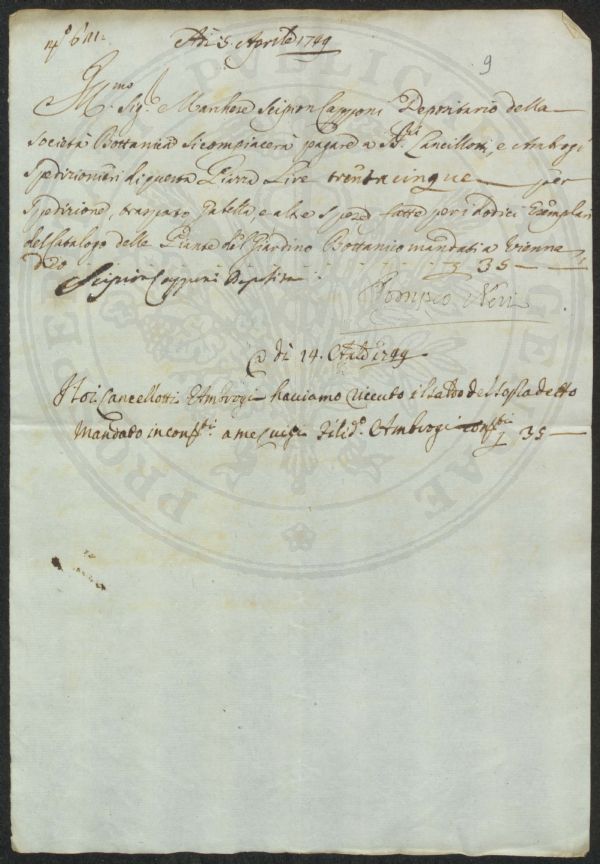 Adi 5 Aprile 1749
9
Ill.mo Sig.r Marchese Scipion Capponi Depositario della
Società Bottanica si compiacerà pagare a SS.ri Lancillotti, e Ambrogi
Spedizionieri di questa Piazza Lire trentacinque per
Spedizione, trasporto Gabella, e altre spese fatte per i dodici Exemplari
del Catalogo delle Piante del Giardino Bottanico mandati a Vienna
£ 35
Scipion Capponi Deposit.
Pompeo Neri
Adi 14 1749
Noi Lancellotti e Ambrogi haviamo ricevuto il saldo del sopradetto
Mandato in cont.ti a me Luigi Ambrogi cont.ti £ 35
PROPERTY PUBLICAE